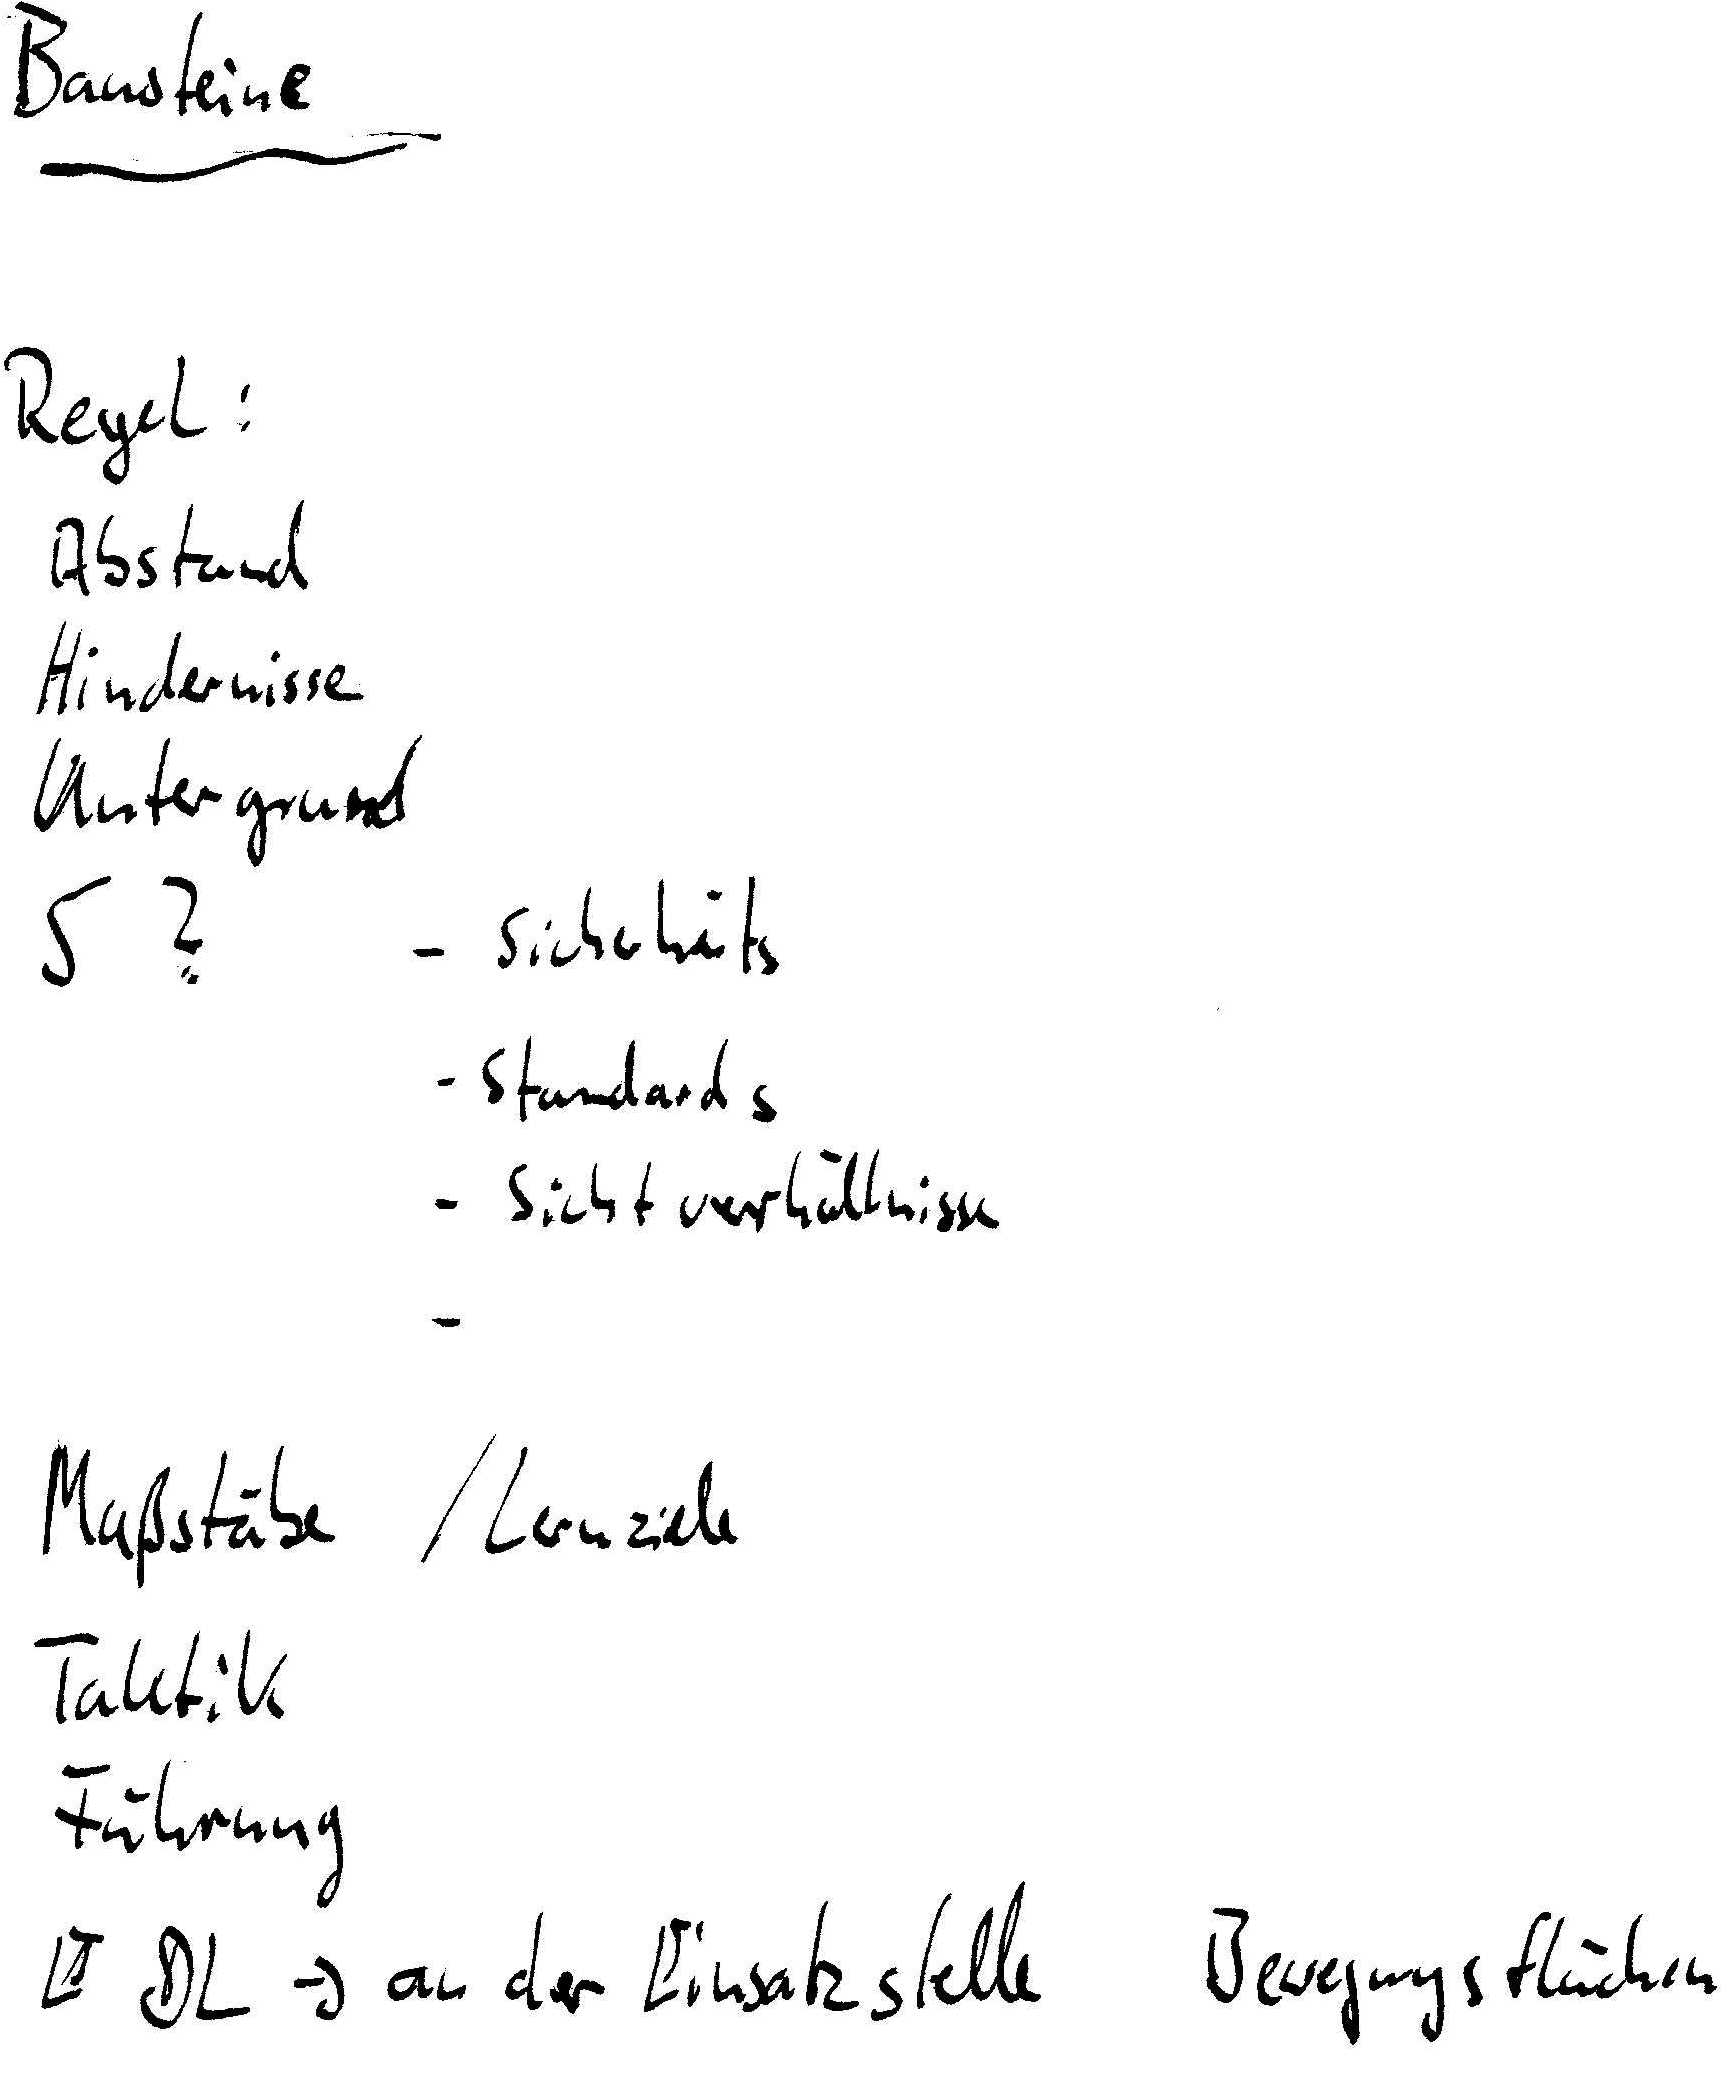 Bausteine
Regel:
Abstand
Hindernisse
Untergrund
S ? - Sicherheits
- Standards
- Sichtverhältnisse
-
Maßstäbe / Lernziele
Taktik
Führung
DL → an der Einsatzstelle Bewegungsflächen